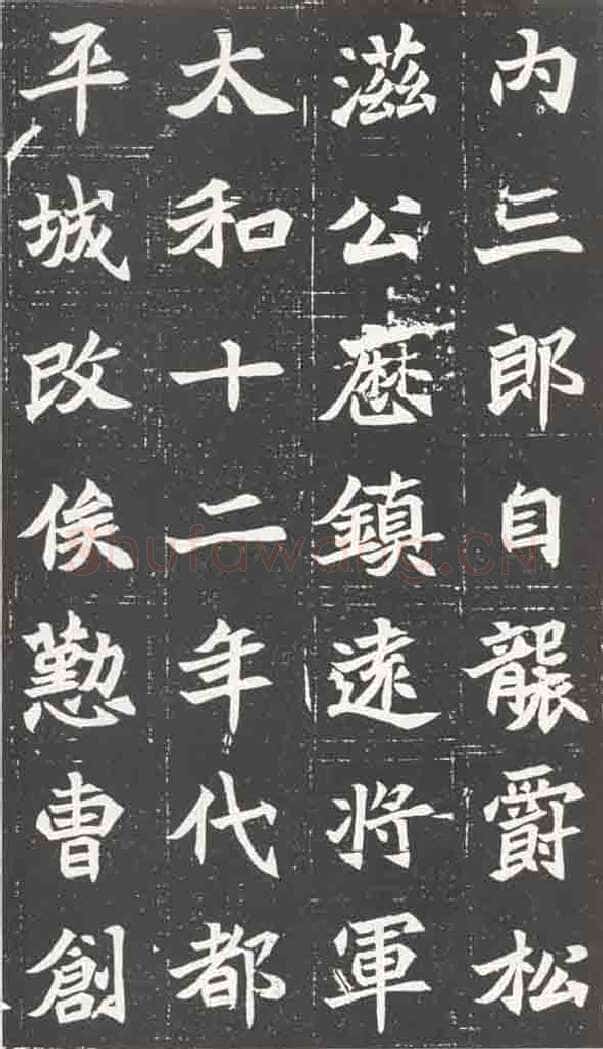 内三郎自襲爵松
滋公歷鎮遠將軍
太和十二年代都
平城改俟懃曹創
Shufawang.CN